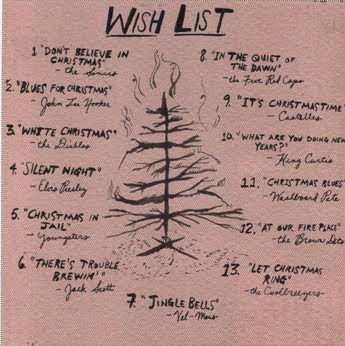 WISH LIST
1 "DON'T BELIEVE IN
CHRISTMAS"
- the Sonics
2. "BLUES FOR CHRISTMAS"
- John Lee Hooker
3. "WHITE CHRISTMAS"
- the Diablos
4. "SILENT NIGHT"
- Elvis Presley
5. "CHRISTMAS IN
JAIL"
- Youngsters
6. "THERE'S TROUBLE
BREWIN'"
- Jack Scott
7. "JINGLE BELLS"
- Vel-Mars
8. "IN THE QUIET OF
THE DAWN"
- the Five Red Caps
9. "IT'S CHRISTMASTIME"
Castelles
10. "WHAT ARE YOU DOING NEW
YEARS?"
- King Curtis
11. "CHRISTMAS BLUES"
Washboard Pete
12. "AT OUR FIRE PLACE"
- the Brown Dots
13. "LET CHRISTMAS
RING"
- the Coolbreezers